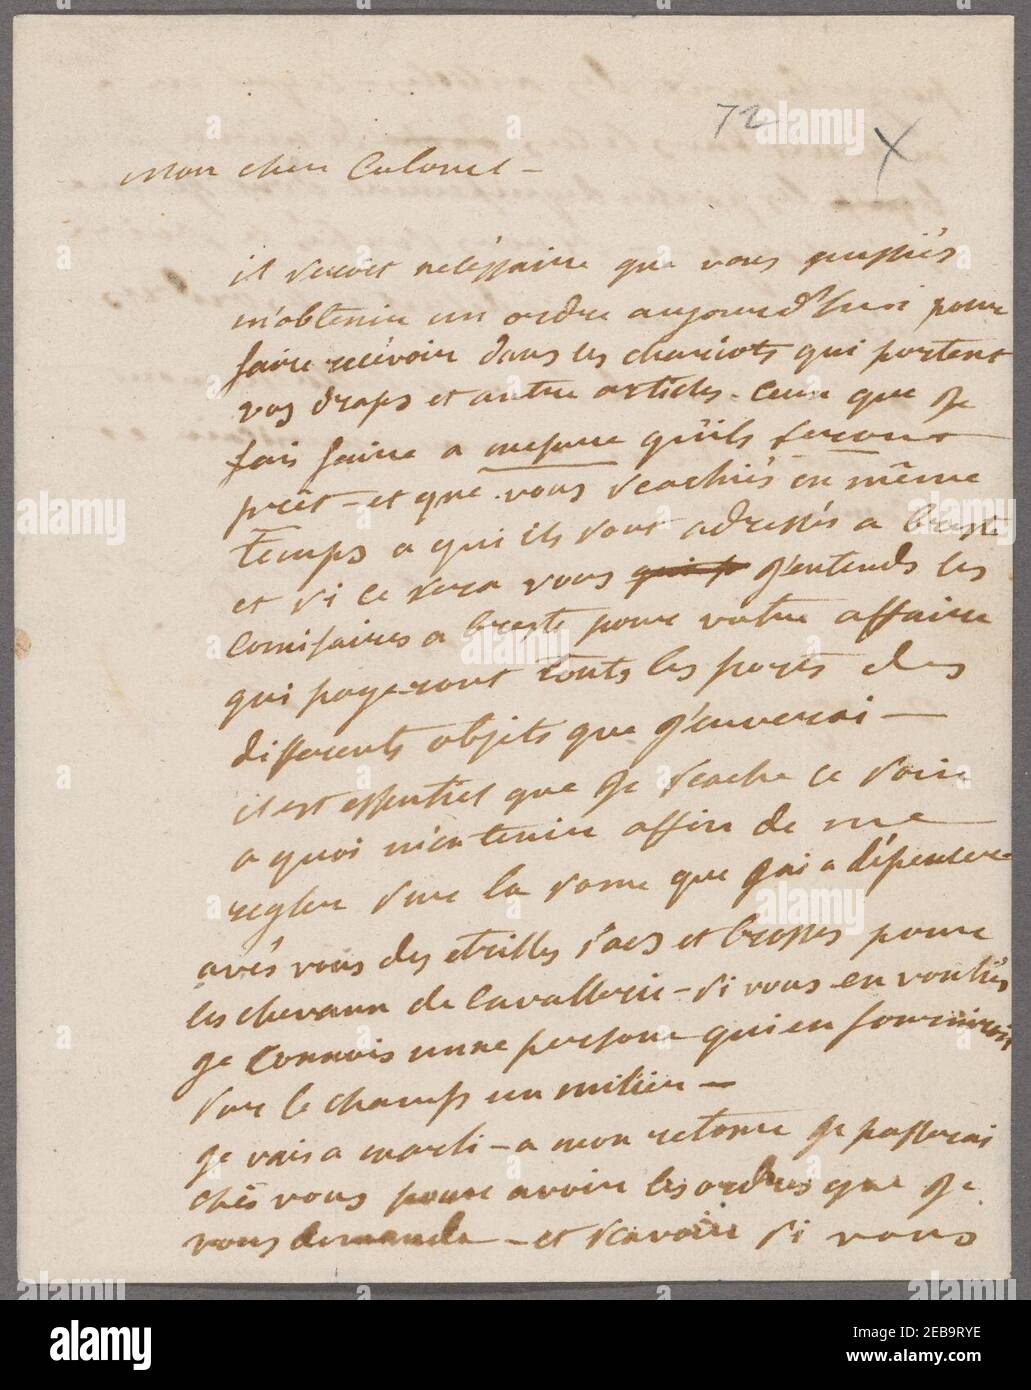 72
X
Mon cher Colonel -
il seroit neléssaire que vous pussiés
m'obtenir un ordre aujourd'hui pour
faire recévoir dans les chariots qui portent
vos draps et autre articles. Ceux que je
fais faire a mesure qu'ils seront
prêt - et que vous scachiés en même
temps a qui ils sont adressés a breste
et si ce sera vous qui p j'entends les
Comissaires a breste pour votre affaire
qui payeront touts les ports des
differents objets que j'enverai -
il est essentiel que je scache ce soir
a quoi m'en tenir affin de me
regler sur la some que j'ai a dépenser
avés vous des etrilles sacs et brosses pour
les chevaux de Cavallerie - si vous en voulés
je connois unne persone qui en fourniroit
sur le champs un milier -
je vais a marli - a mon retour je passerai
chés vous pour avoir les ordres que je
vous demande - et scavoir si vous
alamy
Image ID: 2EB9RYE
www.alamy.com